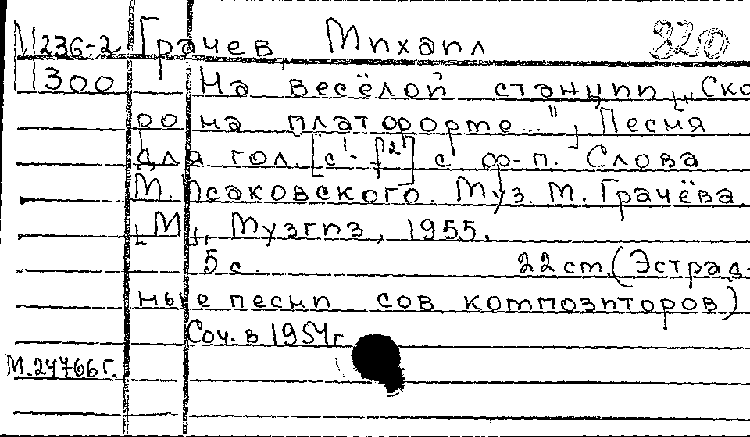 М236-2 Грачев, Михаил 320
300 На весёлой станции „Ско
ро на платформе...", Песня
для гол. [c¹-f²] с ф-п. Слова
М. Исаковского. Муз. М. Грачёва.
[М], Музгиз, 1955.
5 с. 22 cm (Эстрад-
ные песни сов композиторов)
Соч. в 1954г.
М.24766г.